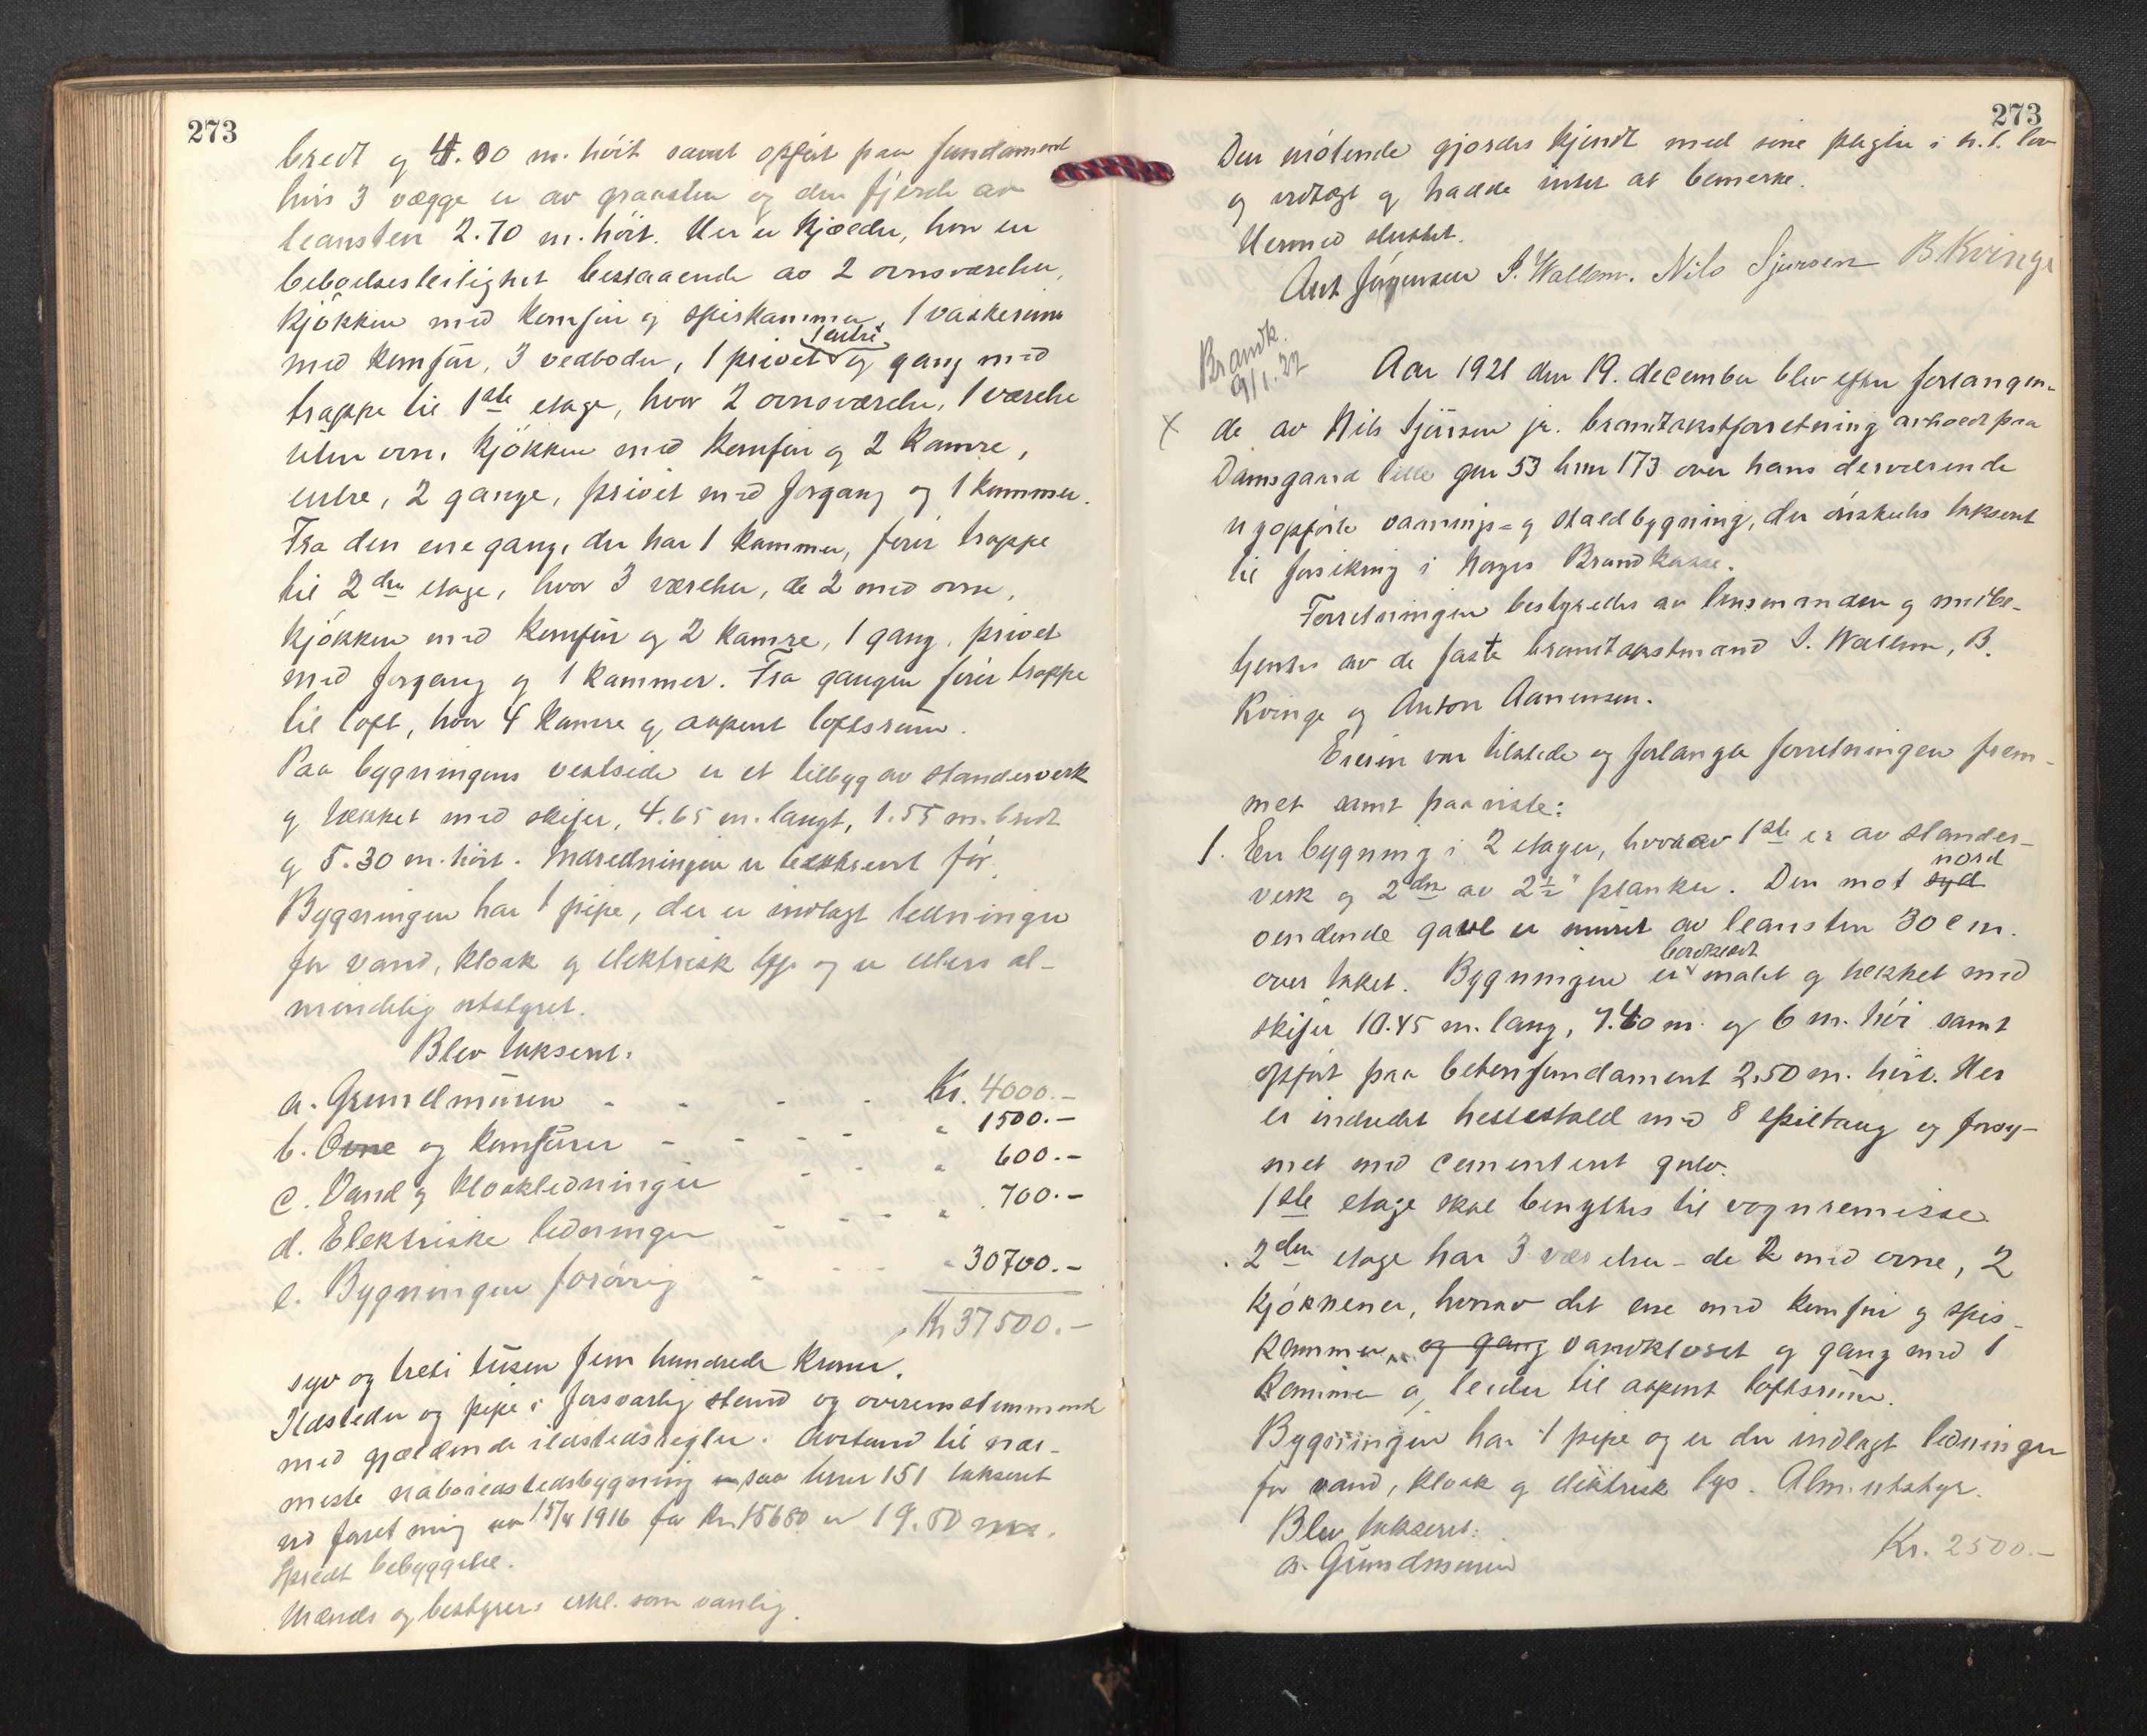 273
bredt og 4.00 m. höit samt opfört paa fundament
hvis 3 vægge er av graasten og den fjerde av
leansten 2.70 m. höit. Her er kjælder, hvor en
beboelsesleilighet bestaaende av 2 ovnsværelser,
kjökken med komfür og spiskammer, 1 vaskerum
med komfür, 3 vedboder, 1 privet 1 entré og gang med
trappe til 1ste etage, hvor 2 ovnsværelser, 1 værelse
uten ovn, kjökken med komfür og 2 kamre,
entre, 2 gange, privet med forgang og 1 kammer.
Fra den ene gang, der har 1 kammer, förer trappe
til 2den etage, hvor 3 værelser, de 2 med ovne,
kjökken med komfür og 2 kamre, 1 gang, privet
med forgang og 1 kammer. Fra gangen förer trappe
til loft, hvor 4 kamre og aapent loftsrüm.
Paa bygningens vestside er et tilbyg av standerverk
og tækket med skifer, 4.65 m. langt, 1.55 m. bredt
og 5.30 m. höit. Indredningen er beskrevet før.
Bygningen har 1 pipe, der er indlagt ledninger
for vand, kloak og elektrisk lys og er ellers al-
mindelig utstyret.
Blev taksert:
a. Grundmüren - - - - Kr. 4000.-
b. Ovne og komfürer - - - - " 1500.-
c. Vand og kloakledninger - - " 600.-
d. Elektriske ledninger - - - " 700.-
e. Bygningen forövrig - - - " 30700.-
Kr 37500.-
syv og treti tusen fem hundrede kroner.
Ildsteder og pipe i forsvarlig stand og overensstemmende
med gjældende ildstedsregler. Avstand til nær-
meste naboildstedsbygning paa brnr 151 taksert
ved forretning av 15/4 1916 for Kr. 15680 er 19.50 m.
Spredt bebyggelse.
Mænds og bestyrers erkl. som vanlig.
273
Den mötende gjordes kjendt med sine pligter i h.t. lov
og vedtægt og hadde intet at bemerke.
Hermed sluttet.
Ant Jörgensen S. Wallem. Nils Sjursen B Kvinge
Brandk.
9/1. 22
Aar 1921 den 19. december blev efter forlangen-
x de av Nils Sjürsen jr. brandtakstforretning avholdt paa
Damsgaard lille gnr 53 brnr 173 over hans derværende
nyopförte vaanings- og staldbygning, der önskedes taksert
til forsikring i Norges Brandkasse.
Forretningen bestyredes av lensmanden og medbe-
tjentes av de faste brandtakstmænd S. Wallem, B.
Kvinge og Anton Aanensen.
Eieren var tilstede og forlangte forretningen frem-
met samt paaviste:
1. En bygning i 2 etager, hvorav 1ste er av stander-
verk og 2den av 2½" planker. Den mot syd nord
vendende gavl er müret av leansten 30 cm.
over taket. Bygningen er bordklædt malet og tækket med
skifer 10.45 m. lang, 7.40 m. og 6 m. höi samt
opfört paa betonfundament 2.50 m. höit. Her
er indredet hestestald med 8 spiltaug og forsy-
net med cementert gulv.
1ste etage skal benyttes til vognremisse
2den etage har 3 værelser - de 2 med ovne, 2
kjökkener, hvorav det ene med komfür og spis-
kammer, og gang vandkloset og gang med 1
kammer og leider til aapent loftsrüm.
Bygningen har 1 pipe og er der indlagt ledninger
for vand, kloak og elektrisk lys. Alm. utstyr.
Blev taksert:
a. Gründmüren Kr. 2500.-